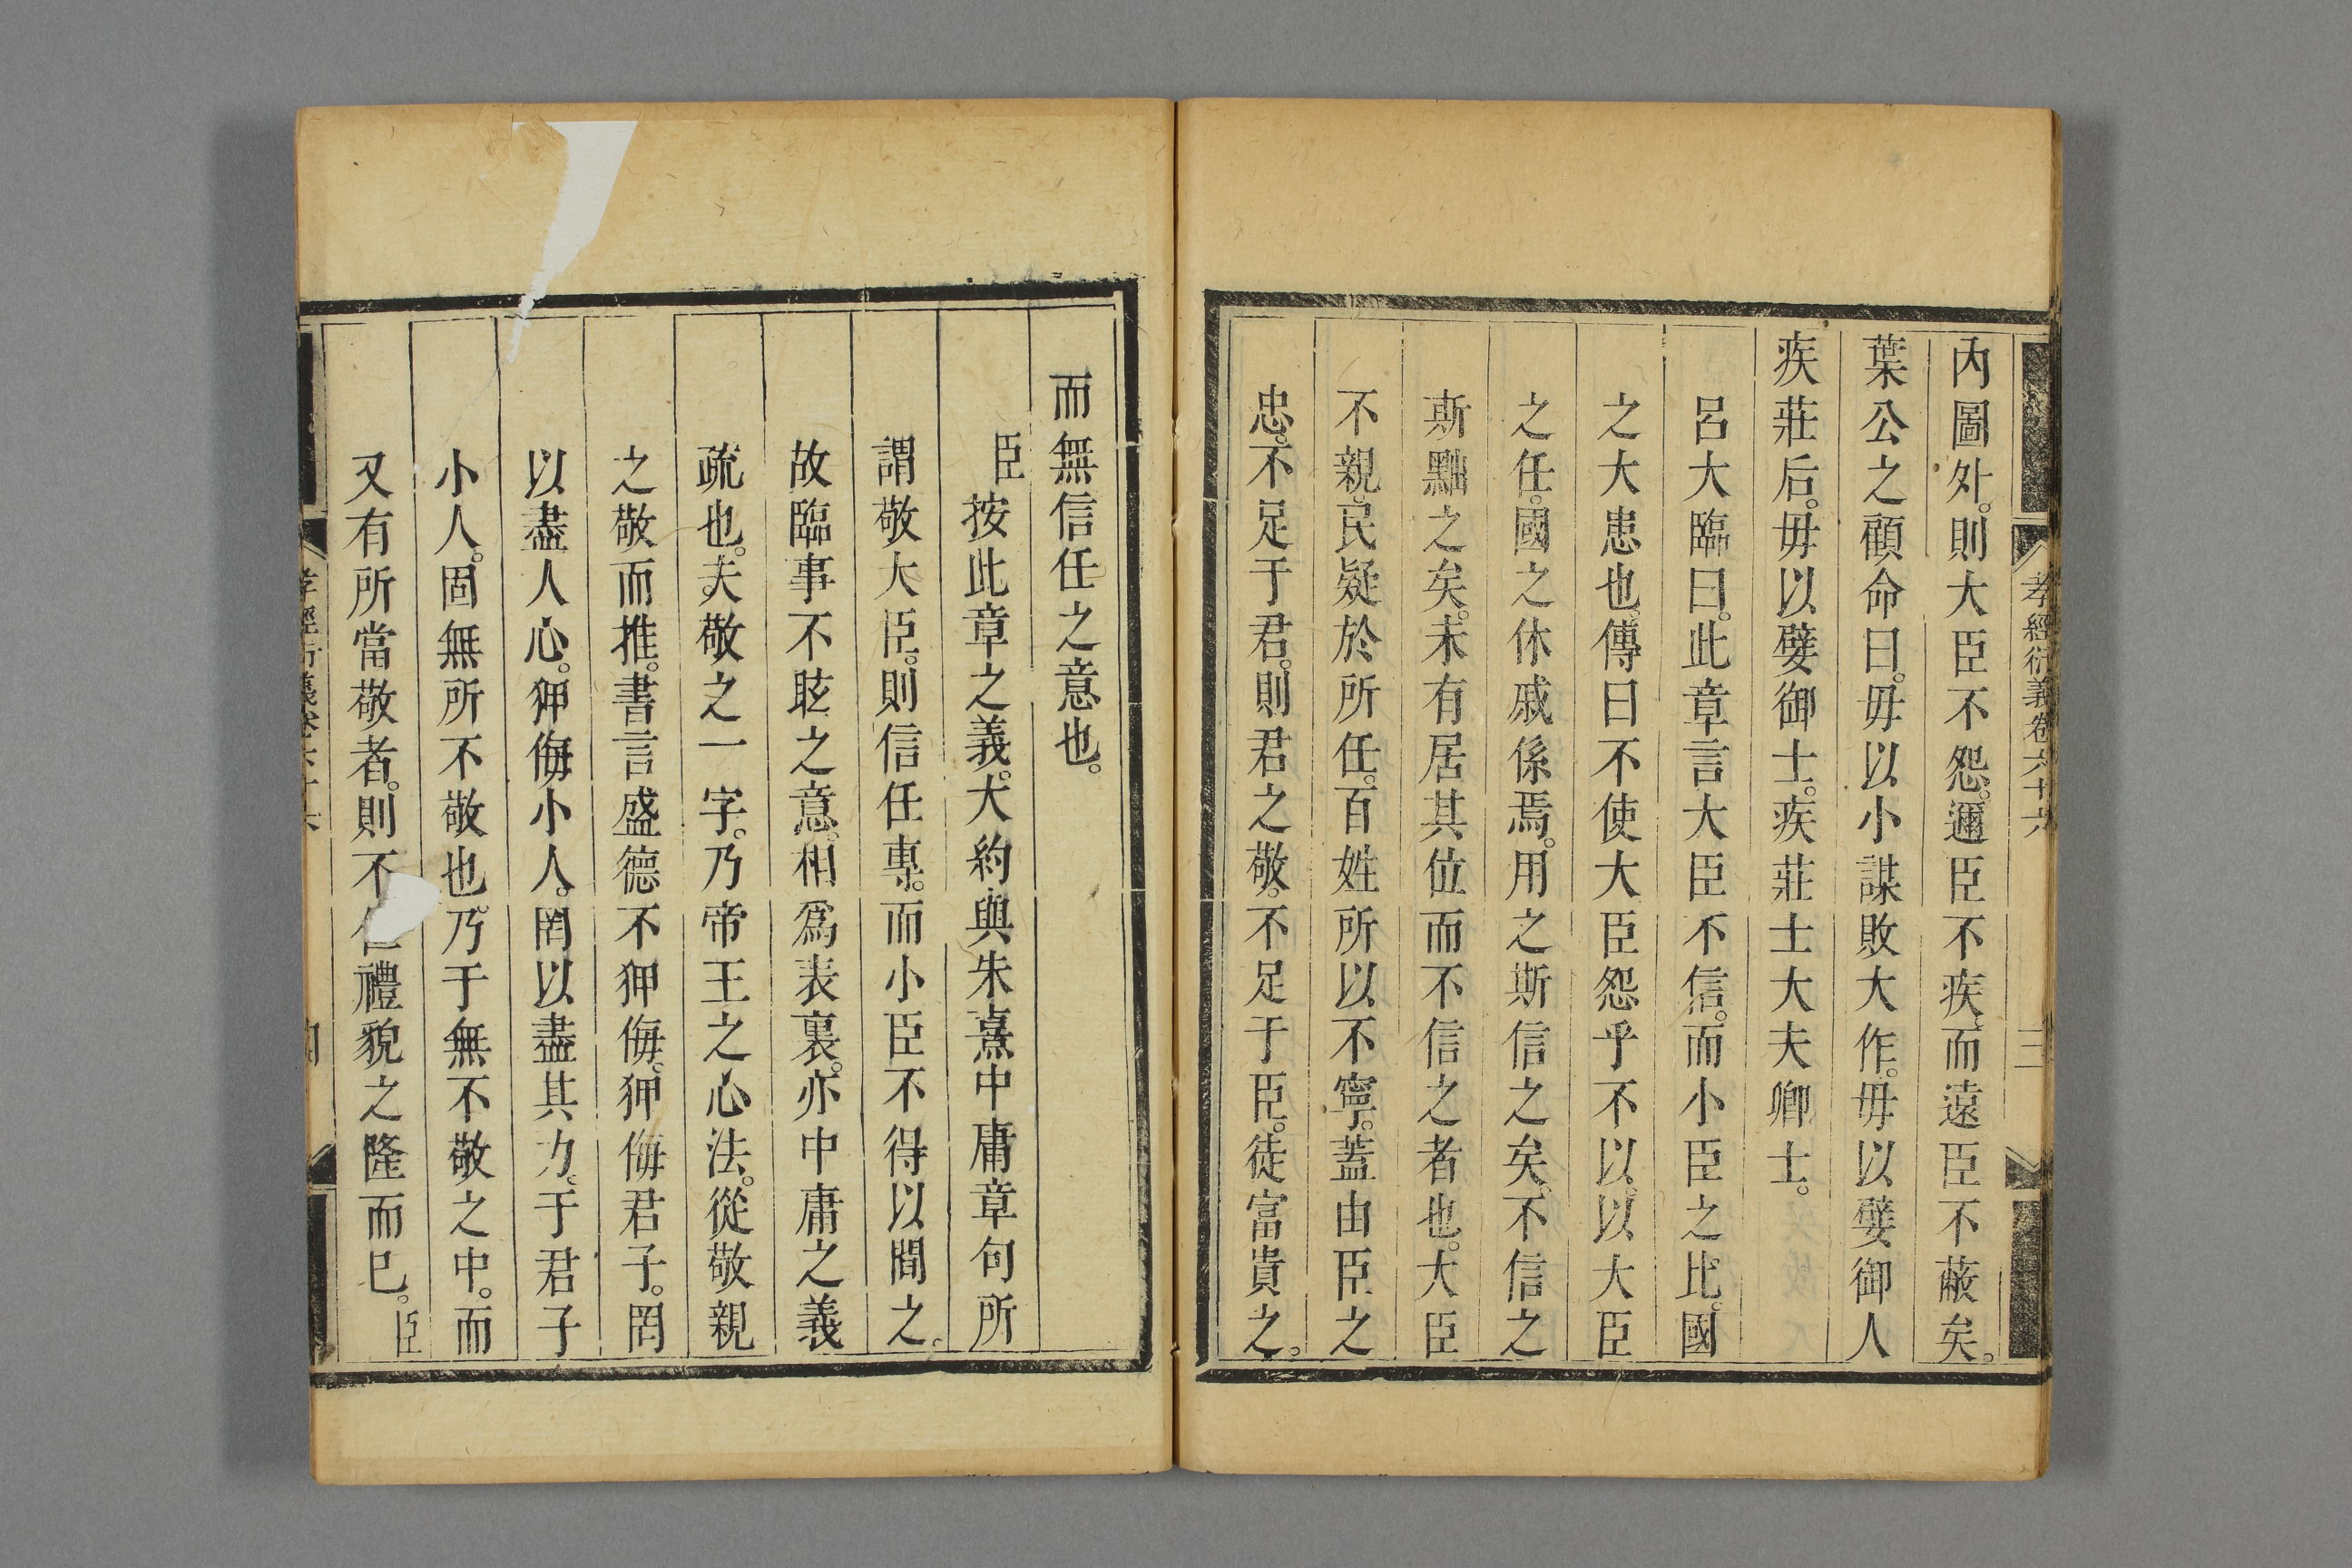 孝經衍義卷六十六
三
內圖外。則大臣不怨。邇臣不疾。而遠臣不蔽矣。
葉公之顧命曰。毋以小謀敗大作。毋以嬖御人
疾莊后。毋以嬖御士。疾莊士大夫卿士。
呂大臨曰。此章言大臣不信。而小臣之比。國
之大患也。傳曰不使大臣怨乎不以。以大臣
之任。國之休戚係焉。用之斯信之矣。不信之
斯黜之矣。未有居其位而不信之者也。大臣
不親。民疑於所任。百姓所以不寧。蓋由臣之
忠。不足于君。則君之敬。不足于臣。徒富貴之。
而無信任之意也。
臣按此章之義。大約與朱熹中庸章句所
謂敬大臣。則信任專。而小臣不得以間之。
故臨事不眩之意。相爲表裏。亦中庸之義
疏也。夫敬之一字。乃帝王之心法。從敬親
之敬而推。書言盛德不狎侮。狎侮君子。罔
以盡人心。狎侮小人。罔以盡其力。于君子
小人。固無所不敬也。乃于無不敬之中。而
又有所當敬者。則不禮貌之隆而已。臣
孝經衍義卷六十六